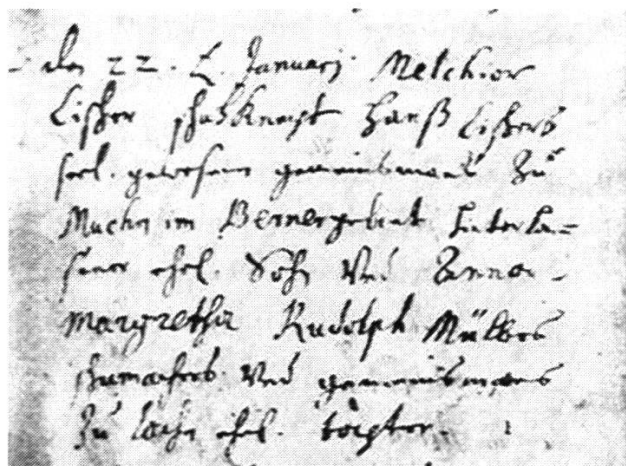 den 22. Januarj Melchior
Lißher schafKnecht Hanß Lißhers
seel. gewesenen gemeinsmans Zu
Muehn im Bernergebiet hinterla=
sener ehel. Sohn Und Anna
Margretha Rudolph Müllers
shumachers Und gemeinsmans
Zu ehel. tochter.